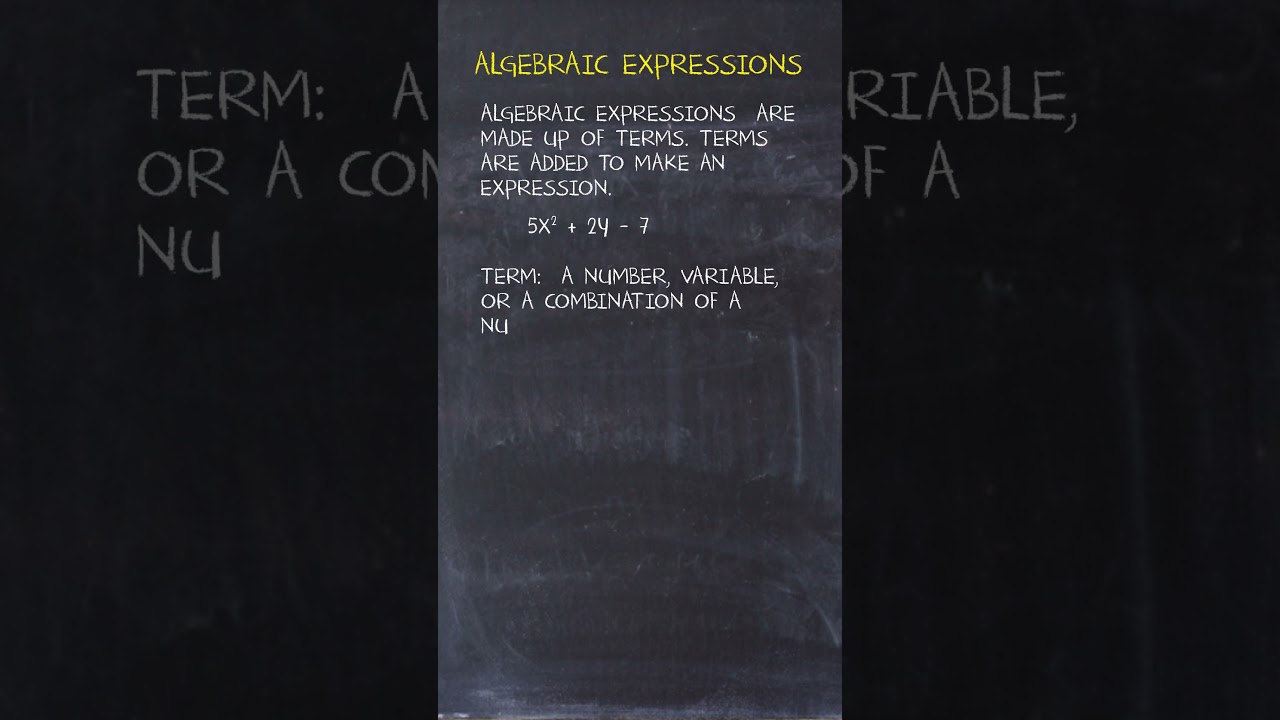 ALGEBRAIC EXPRESSIONS
ALGEBRAIC EXPRESSIONS ARE
MADE UP OF TERMS. TERMS
ARE ADDED TO MAKE AN
EXPRESSION.
5X² + 2Y - 7
TERM: A NUMBER, VARIABLE,
OR A COMBINATION OF A
NU
TERM: A
OR A CO
NU
RIABLE,
OF A